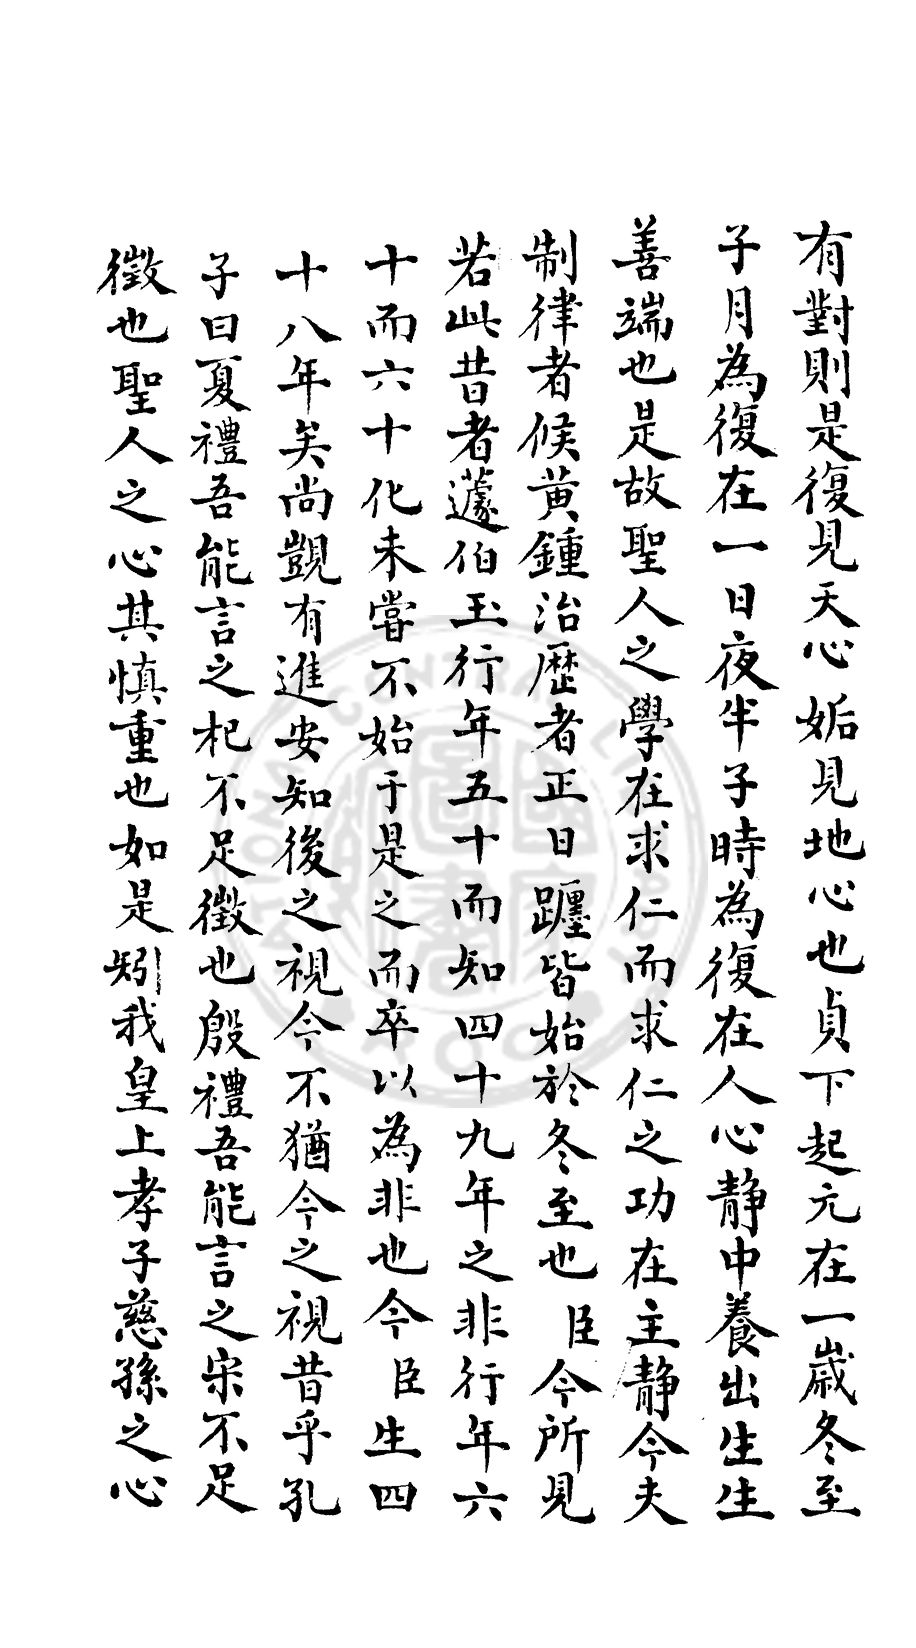 有對則是復見天心姤見地心也貞下起元在一歳冬至
子月為復在一日夜半子時為復在人心静中養出生生
善端也是故聖人之學在求仁而求仁之功在主静今夫
制律者候黄鍾治歷者正日躔皆始於冬至也臣今所見
若此昔者蘧伯玉行年五十而知四十九年之非行年六
十而六十化未嘗不始于是之而卒以為非也今臣生四
十八年矣尚覬有進安知後之視今不猶今之視昔乎孔
子曰夏禮吾能言之杞不足徵也殷禮吾能言之宋不足
徵也聖人之心其慎重也如是矧我皇上孝子慈孫之心